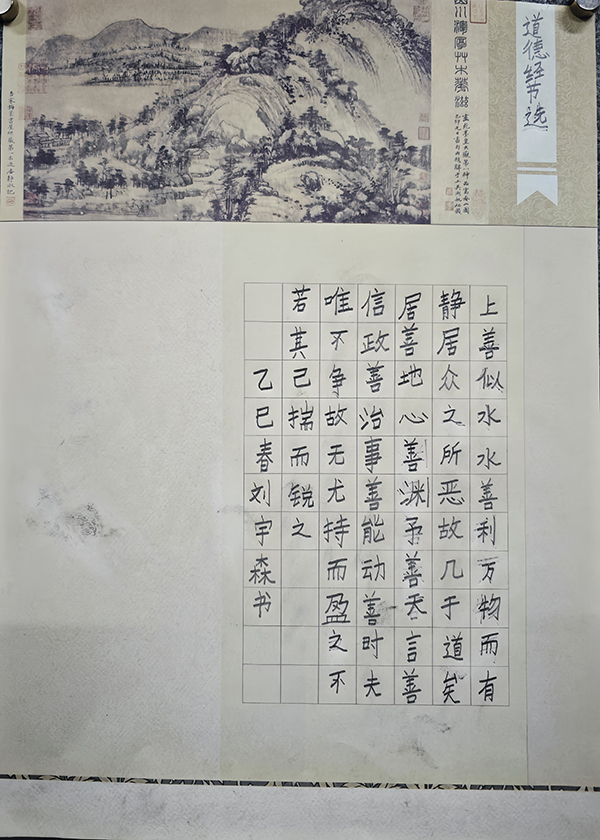 道德经节选
山川浑厚草木华滋
上善似水水善利万物而有
静居众之所恶故几于道矣
居善地心善渊予善天言善
信政善治事善能动善时夫
唯不争故无尤持而盈之不
若其己揣而锐之
乙巳春刘宇森书